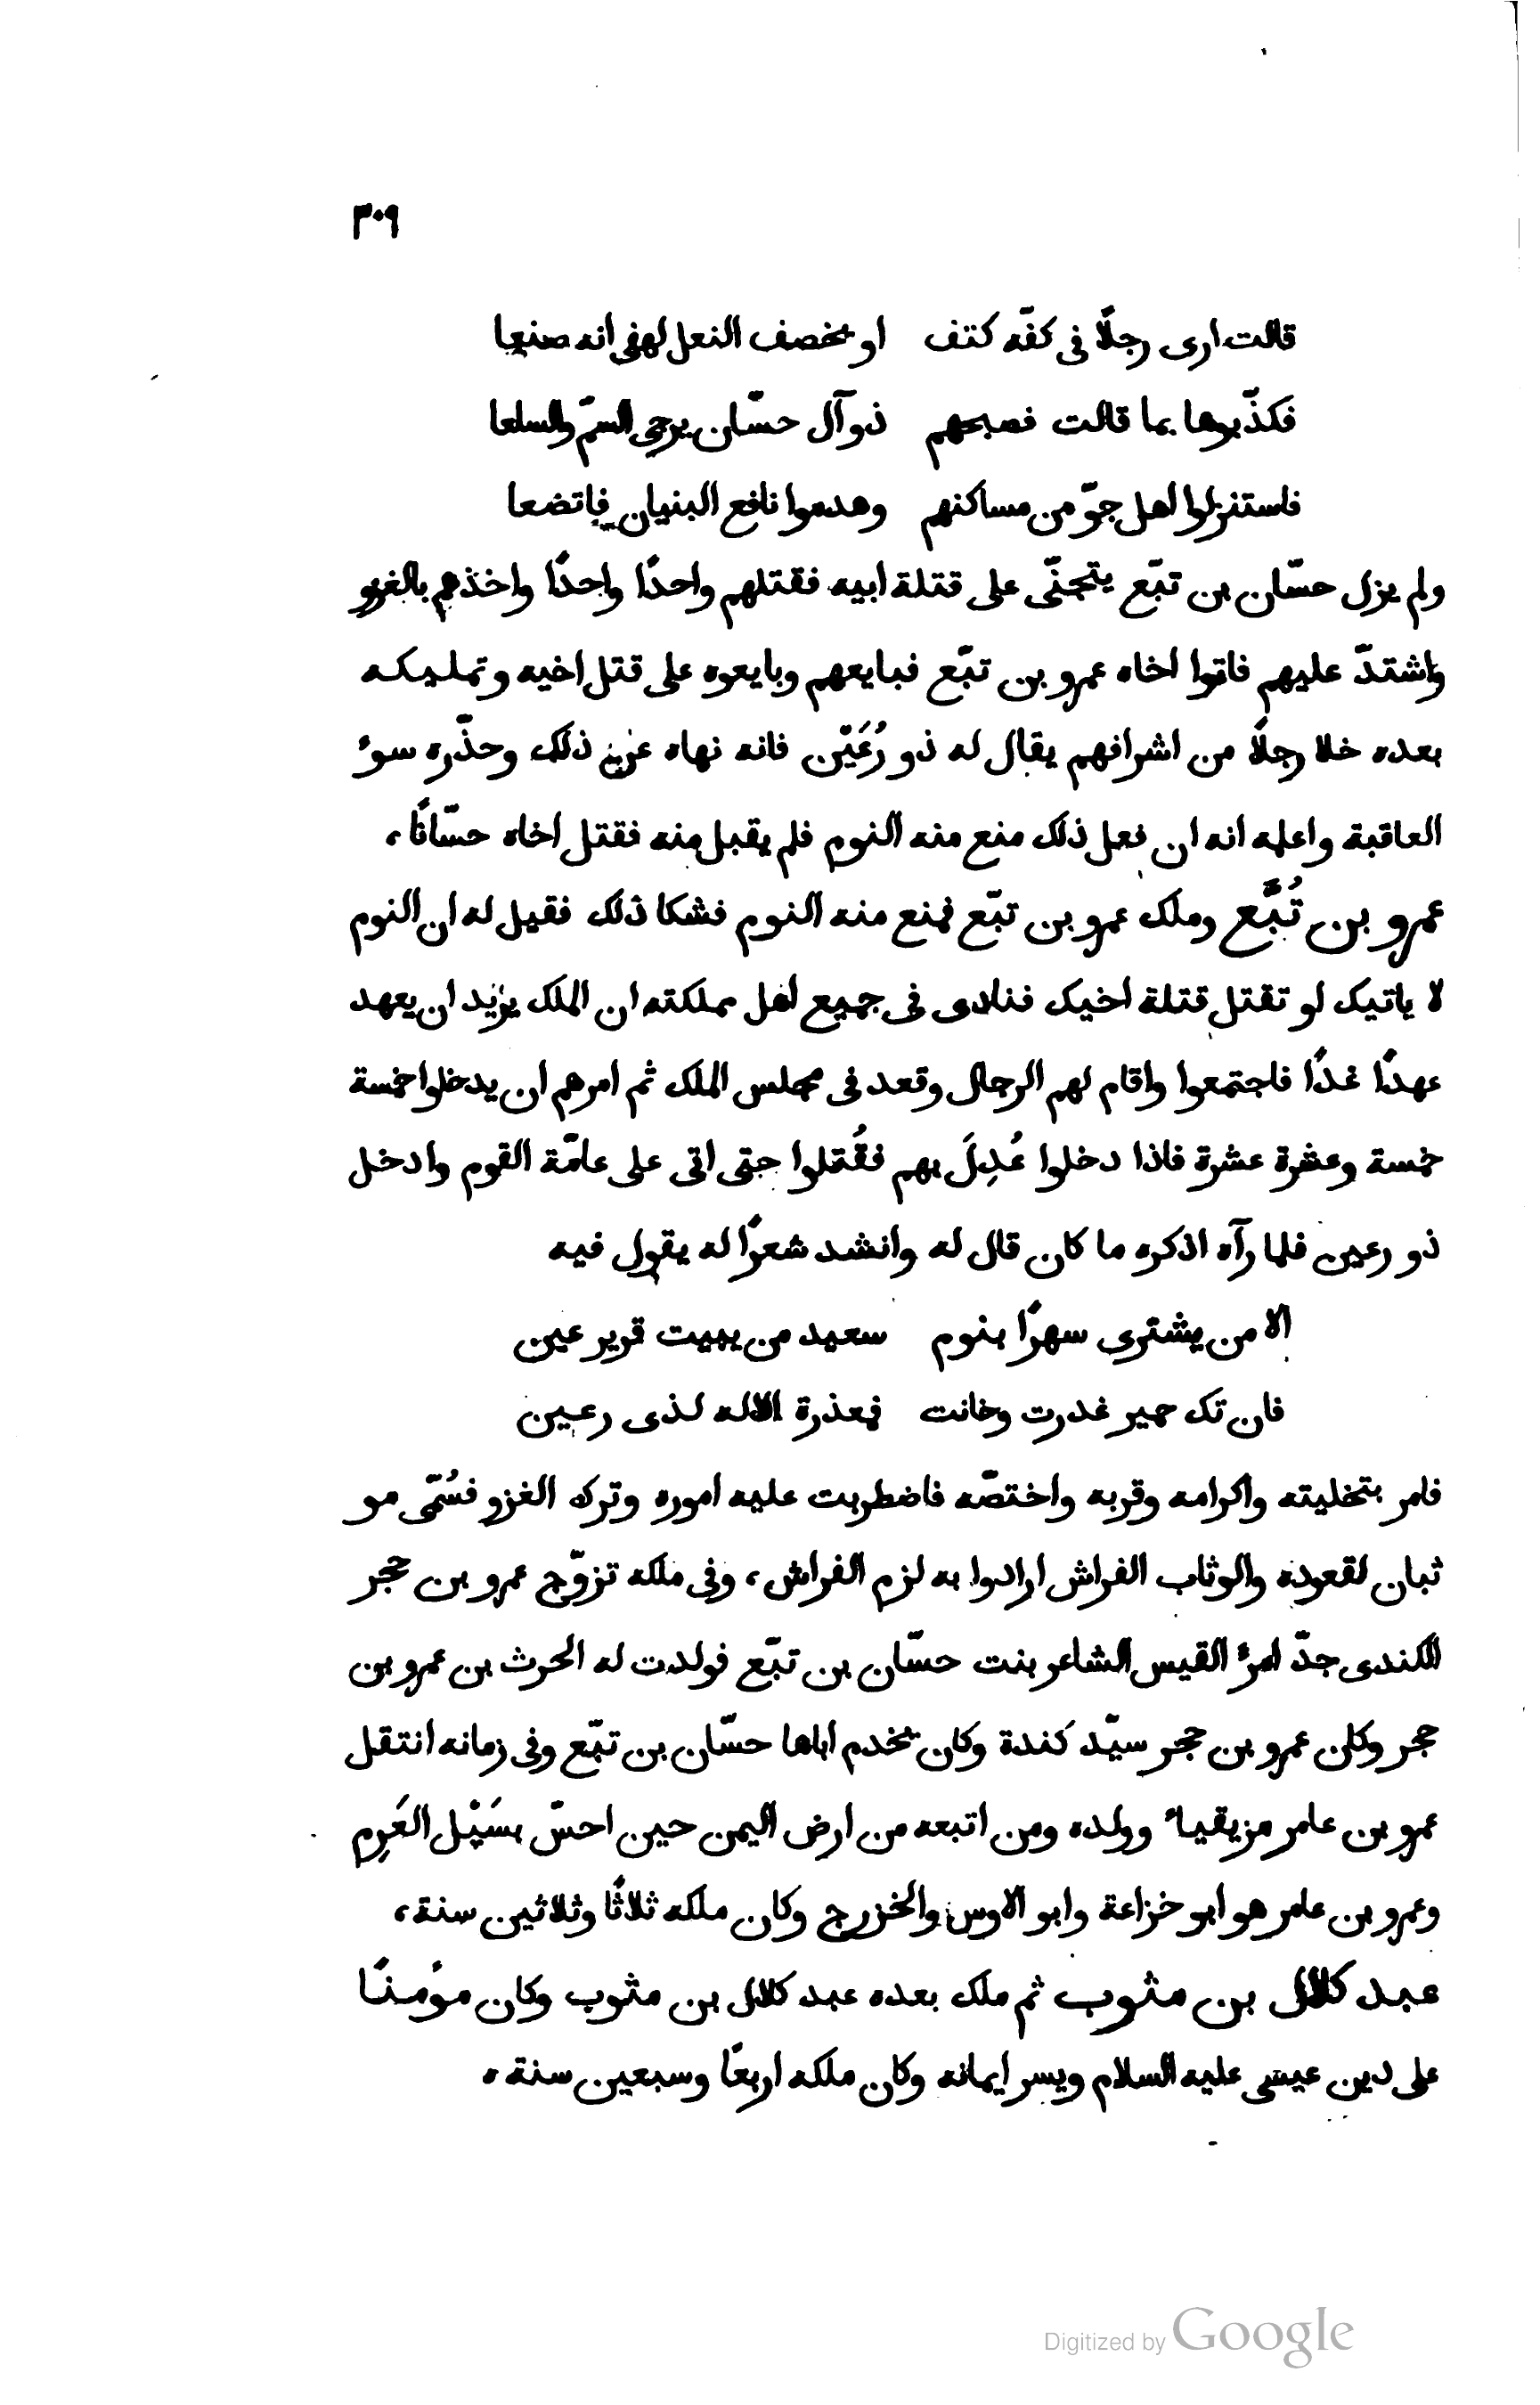 ٣٠٩
قالت ارى رجلًا فى كفّه كتف او يخصف النعل لهفى انه صنعا
فكذّبوها بما قالت فصبحهم ذو آل حسّان يزجى السمّ والسلعا
فاستنزلوا اهل جوّ من مساكنهم وهدموا نافع البنيان فاتضعا
ولم يزل حسّان بن تبّع يتجنّى على قتلة ابيه فقتلهم واحدًا واحدًا واخذهم بالغزو
واشتدّ عليهم فاتوا اخاه عمرو بن تبّع فبايعهم وبايعوه على قتل اخيه وتمليكه
بعده خلا رجلًا من اشرافهم يقال له ذو رُعَيْن فانه نهاه عن ذلك وحذّره سوء
العاقبة واعلمه انه ان فعل ذلك منع منه النوم فلم يقبل منه فقتل اخاه حسّانًا،
عمرو بن تُبَّع وملك عمرو بن تبّع فمنع منه النوم فشكا ذلك فقيل له ان النوم
لا ياتيك او تقتل قتلة اخيك فنادى فى جميع اهل مملكته ان الملك يريد ان يعهد
عهدًا غدًا فاجتمعوا واقام لهم الرجال وقعد فى مجلس الملك ثم امرهم ان يدخلوا خمسة
خمسة وعشرة عشرة فاذا دخلوا عُدِلَ بهم فقُتلوا حتى اتى على عامّة القوم وادخل
ذو رعين فلما رآه اذكره ما كان قال له وانشد شعرًا له يقول فيه
الا من يشترى سهرًا بنوم سعيد من يبيت قرير عين
فان تك حمير غدرت وخانت فمعذرة الاله لذى رعين
فامر بتخليته واكرامه وقربه واختصّه فاضطربت عليه اموره وترك الغزو فسُمّى مو
ثبان لقعوده والوثاب الفراش ارادوا به لزم الفراش، وفى ملكه تزوّج عمرو بن حجر
الكندى جدّ امرء القيس الشاعر بنت حسّان بن تبّع فولدت له الحرث بن عمرو بن
حجر وكان عمرو بن حجر سيّد كندة وكان يخدم اباها حسّان بن تبّع وفى زمانه انتقل
عمرو بن عامر مزيقياء وولده ومن اتبعه من ارض اليمن حين احسّ بسَيْل العَرِم
وعمرو بن عامر هو ابو خزاعة وابو الاوس والخزرج وكان ملكه ثلاثًا وثلاثين سنة،
عبد كلال بن مثوب ثم ملك بعده عبد كلال بن مثوب وكان مؤمنًا
على دين عيسى عليه السلام ويسر ايمانه وكان ملكه اربعًا وسبعين سنة،
Digitized by Google